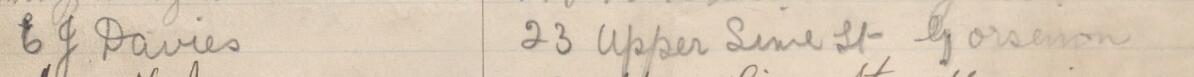 E J Davies 23 Upper Lime St Gorseinon